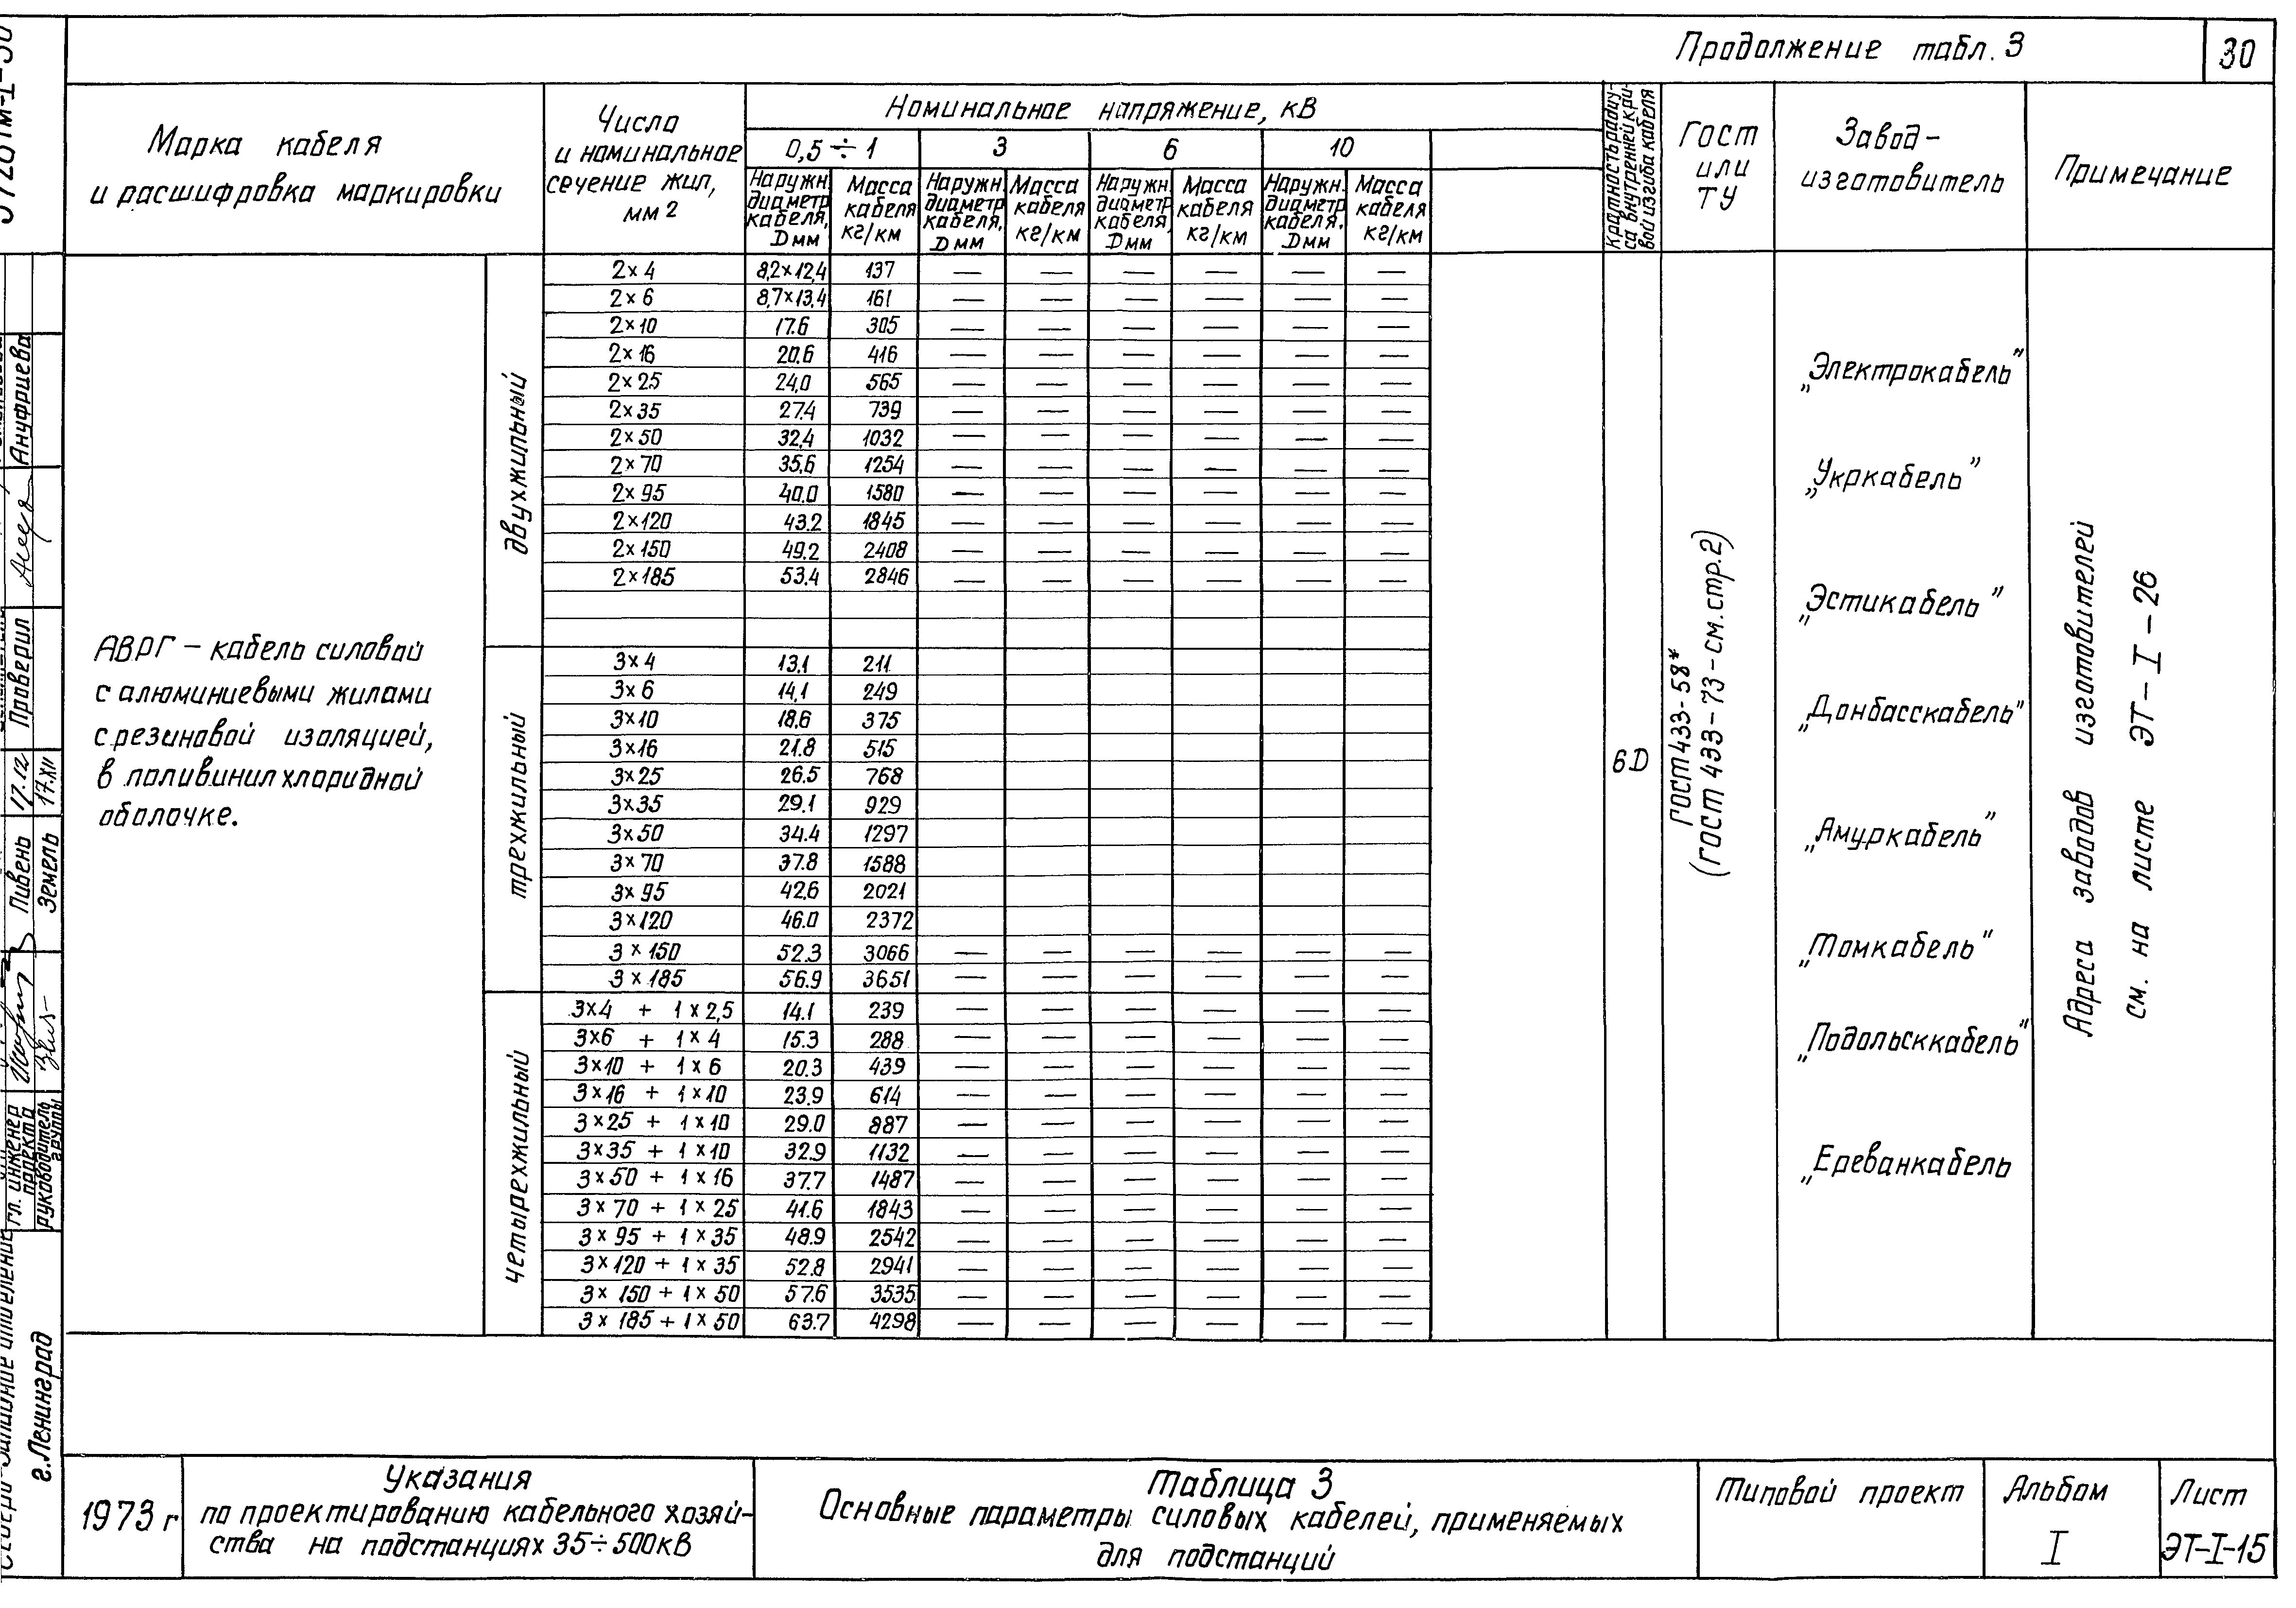 Продолжение табл. 3
30
Марка кабеля
и расшифровка маркировки
Числа
и номинальное
сечение жил,
мм2
Номинальное напряжение, кВ
0,5÷1 3 6 10
Наружн. диаметр кабеля, D мм
Масса кабеля кг/км
Наружн. диаметр кабеля, D мм
Масса кабеля кг/км
Наружн. диаметр кабеля, D мм
Масса кабеля кг/км
Наружн. диаметр кабеля, D мм
Масса кабеля кг/км
Кратность радиу-
са внутренней кри-
вой изгиба кабеля
ГОСТ
или
ТУ
Завод-
изготовитель
Примечание
АВРГ – кабель силовой
с алюминиевыми жилами
с резиновой изоляцией,
в поливинилхлоридной
оболочке.
двухжильный
2×4 8,2×12,4 137 — — — — — —
2×6 8,7×13,4 161 — — — — — —
2×10 17.6 305 — — — — — —
2×16 20.6 416 — — — — — —
2×25 24,0 565 — — — — — —
2×35 27.4 739 — — — — — —
2×50 32,4 1032 — — — — — —
2×70 35,6 1254 — — — — — —
2×95 40.0 1580 — — — — — —
2×120 43.2 1845 — — — — — —
2×150 49.2 2408 — — — — — —
2×185 53.4 2846 — — — — — —
трехжильный
3×4 13,1 211
3×6 14,1 249
3×10 18,6 375
3×16 21.8 515
3×25 26.5 768
3×35 29.1 929
3×50 34.4 1297
3×70 37.8 1588
3×95 42.6 2021
3×120 46.0 2372
3×150 52.3 3066 — — — — — —
3×185 56.9 3651 — — — — — —
четырехжильный
3×4 + 1×2,5 14.1 239 — — — — — —
3×6 + 1×4 15.3 288 — — — — — —
3×10 + 1×6 20.3 439 — — — — — —
3×16 + 1×10 23.9 614 — — — — — —
3×25 + 1×10 29.0 887 — — — — — —
3×35 + 1×10 32.9 1132 — — — — — —
3×50 + 1×16 37.7 1487 — — — — — —
3×70 + 1×25 41.6 1843 — — — — — —
3×95 + 1×35 48.9 2542 — — — — — —
3×120 + 1×35 52.8 2941 — — — — — —
3×150 + 1×50 57.6 3535 — — — — — —
3×185 + 1×50 63.7 4298 — — — — — —
6D
ГОСТ 433-58*
(ГОСТ 433-73-см.стр.2)
„Электрокабель"
„Укркабель"
„Эстикабель"
„Донбасскабель"
„Амуркабель"
„Томкабель"
„Подольсккабель"
„Ереванкабель
Адреса заводов изготовителей
см. на листе ЭТ-I-26
Ануфриева
Проверил
17.12
17.XII
Пивень
Земель
гл. инженер
проекта
руководитель
группы
г.Ленинград
1973 г
Указания
по проектированию кабельного хозяй-
ства на подстанциях 35÷500кВ
Таблица 3
Основные параметры силовых кабелей, применяемых
для подстанций
Типовой проект
Альбом
I
Лист
ЭТ-I-15